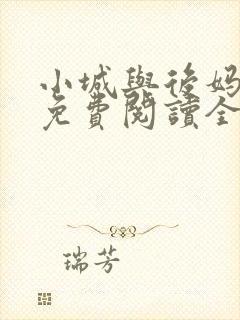 小城與後妈
免費閱讀全
瑞芳